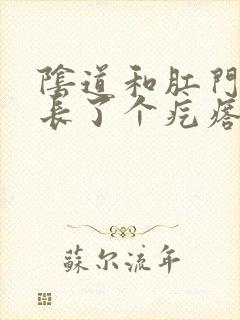 陰道和肛門
長了个疙瘩
蘇尔流年